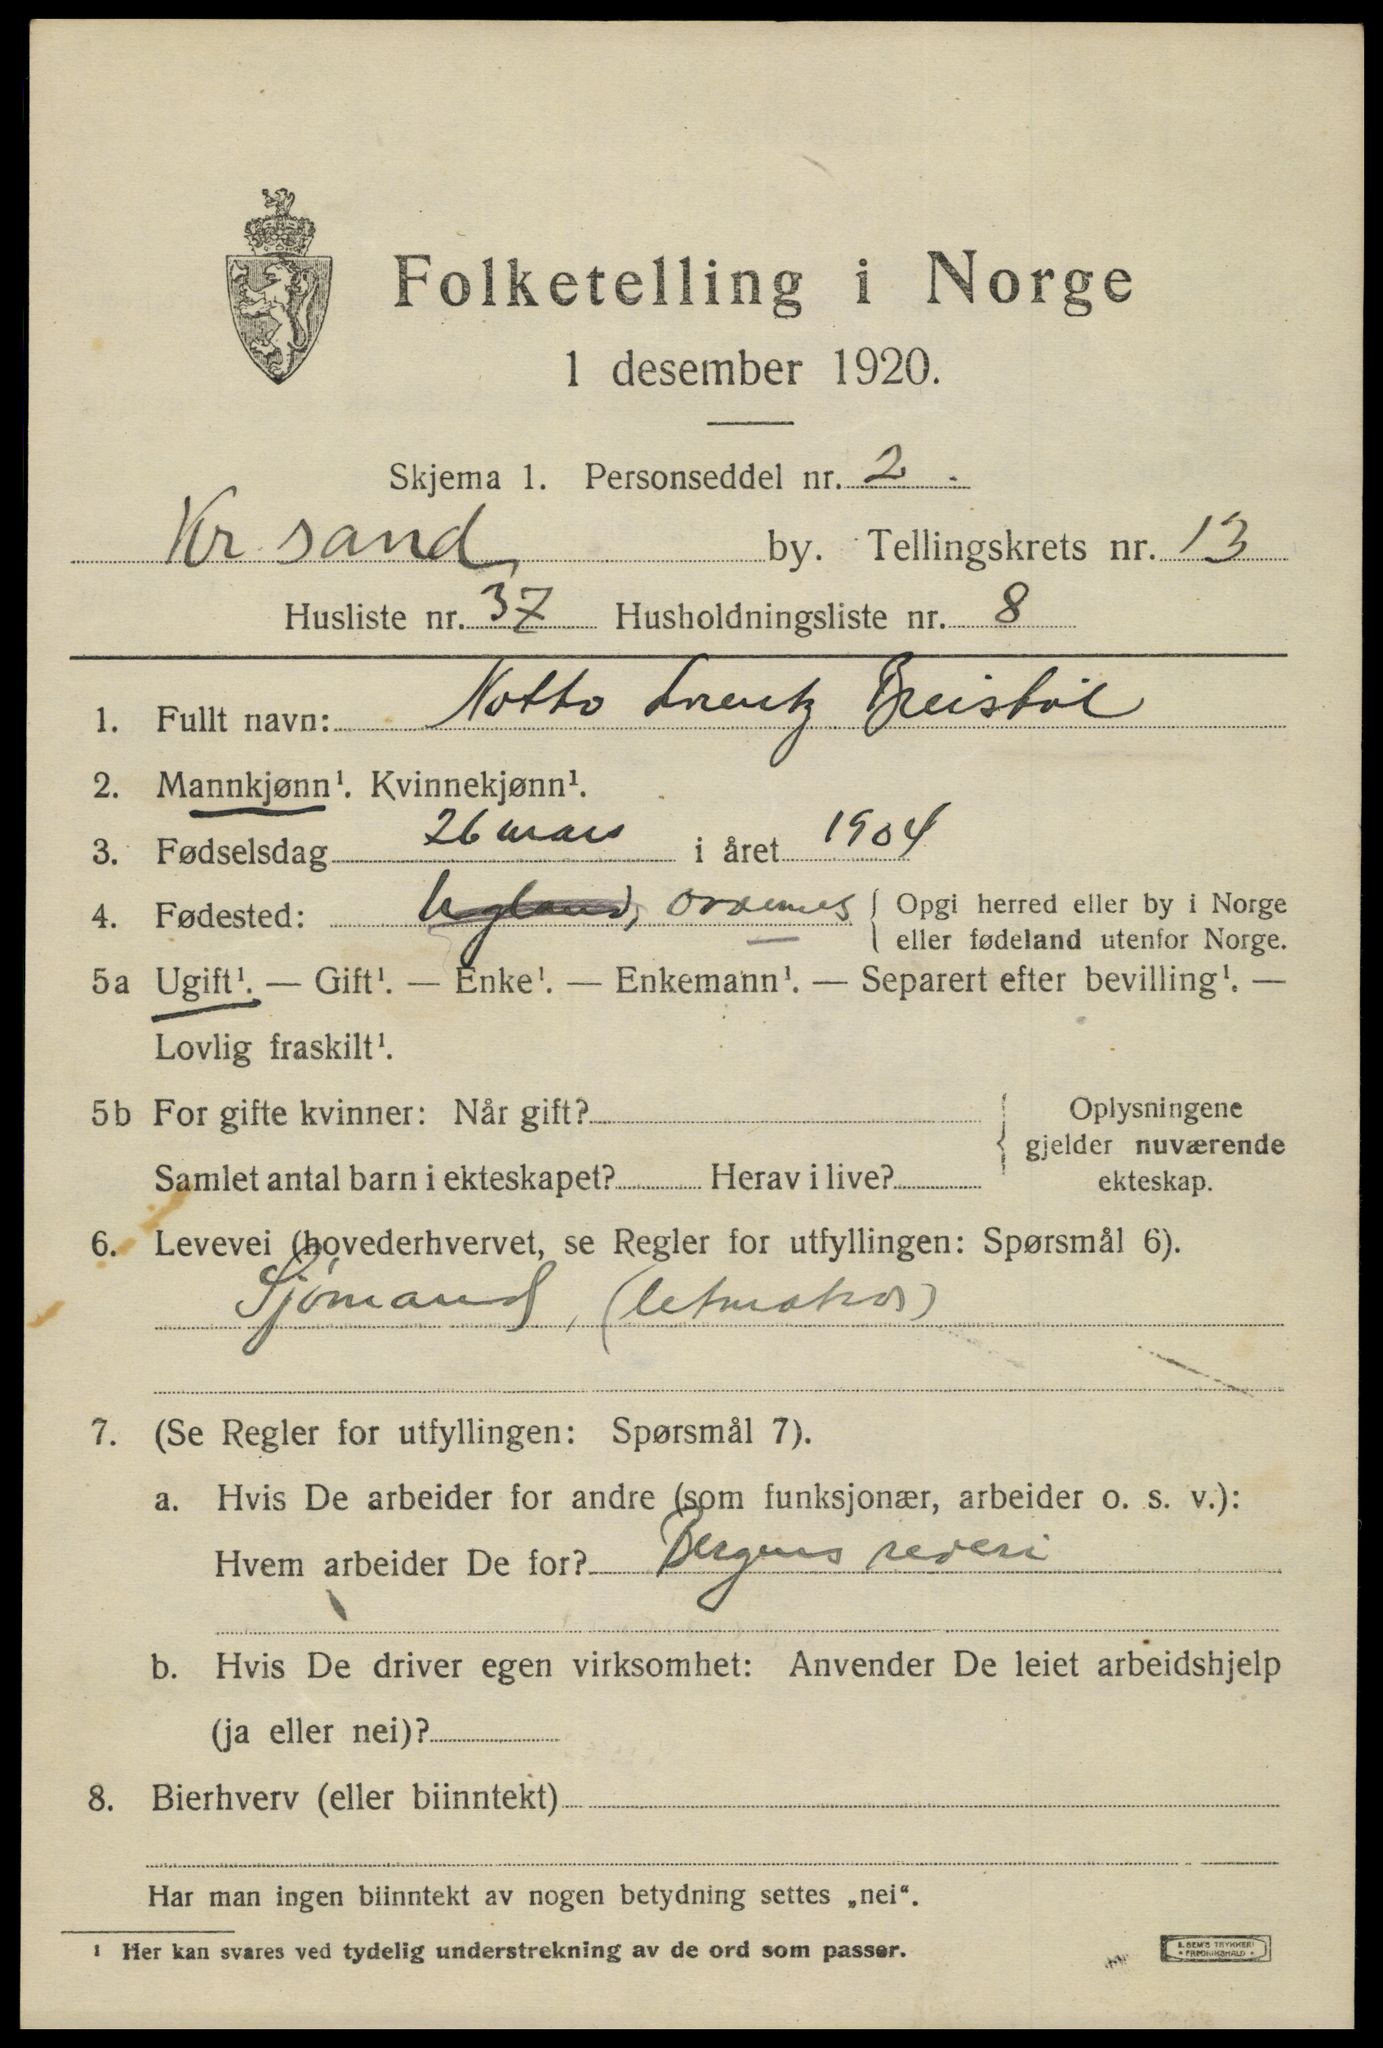 Folketelling i Norge
1 desember 1920.
Skjema 1. Personseddel nr. 2.
Kr sand by. Tellingskrets nr. 13
Husliste nr. 37 Husholdningsliste nr. 8
1. Fullt navn: Notto Lorentz Breistøl
2. Mannkjønn¹. Kvinnekjønn¹.
3. Fødselsdag 26 mars i året 1904
4. Fødested: Opgi herred eller by i Norge
eller fødeland utenfor Norge.
5a Ugift¹. — Gift¹. — Enke¹. — Enkemann¹. — Separert efter bevilling¹. —
Lovlig fraskilt¹.
5b For gifte kvinner: Når gift? Oplysningene
gjelder nuværende
Samlet antal barn i ekteskapet? Herav i live? ekteskap.
6. Levevei (hovederhvervet, se Regler for utfyllingen: Spørsmål 6).
Sjømand, (letmatros)
7. (Se Regler for utfyllingen: Spørsmål 7).
a. Hvis De arbeider for andre (som funksjonær, arbeider o. s. v.):
Hvem arbeider De for? Bergens rederi
b. Hvis De driver egen virksomhet: Anvender De leiet arbeidshjelp
(ja eller nei)?
8. Bierhverv (eller biinntekt)
Har man ingen biinntekt av nogen betydning settes „nei“.
¹ Her kan svares ved tydelig understrekning av de ord som passer.
E. SEM'S TRYKKERI
• FREDRIKSHALD •